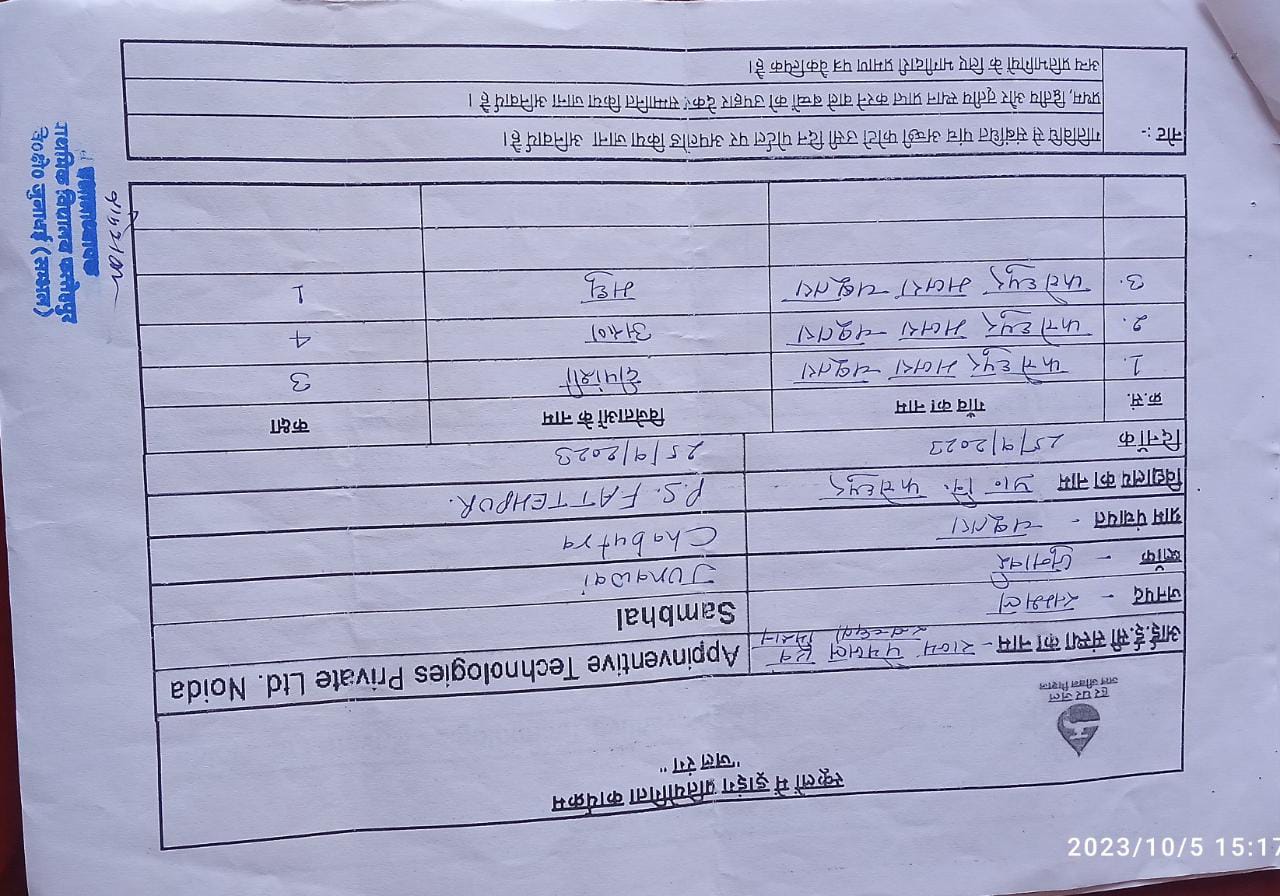 स्कूलों में ड्राइंग प्रतियोगिता कार्यक्रम
"जल रंग"
हर घर जल
जल जीवन मिशन
आई.ई.सी संस्था का नाम - राज्य पेयजल एवं स्वच्छता मिशन
Appinventive Technologies Private Ltd. Noida
जनपद - सम्भल
Sambhal
ब्लॉक - जुनावई
Junawai
ग्राम पंचायत - चबूतरा
Chabutra
विद्यालय का नाम प्रा० वि. फतेहपुर
P.S. FATTEHPUR.
दिनाँक 25/9/2023
25/9/2023
क्र.सं. गाँव का नाम विजेताओं के नाम कक्षा
1. फतेहपुर मजरा चबूतरा दीपांशी 3
2. फतेहपुर मजरा चबूतरा 4
3. फतेहपुर मजरा चबूतरा मधु 1
नोट :- गतिविधि से संबंधित पांच अच्छी फोटो उसी दिन पोर्टल पर अपलोड किया जाना अनिवार्य है।
प्रथम, द्वितीय और तृतीय स्थान प्राप्त करने वाले बच्चों को उपहार देकर सम्मानित किया जाना अनिवार्य है।
अन्य प्रतिभागियों के लिए भागीदारी प्रमाण पत्र वैकल्पिक है।
प्राथमिक विद्यालय फतेहपुर
वे०क्षे० जुनावई (सम्भल)
2023/10/5 15:17